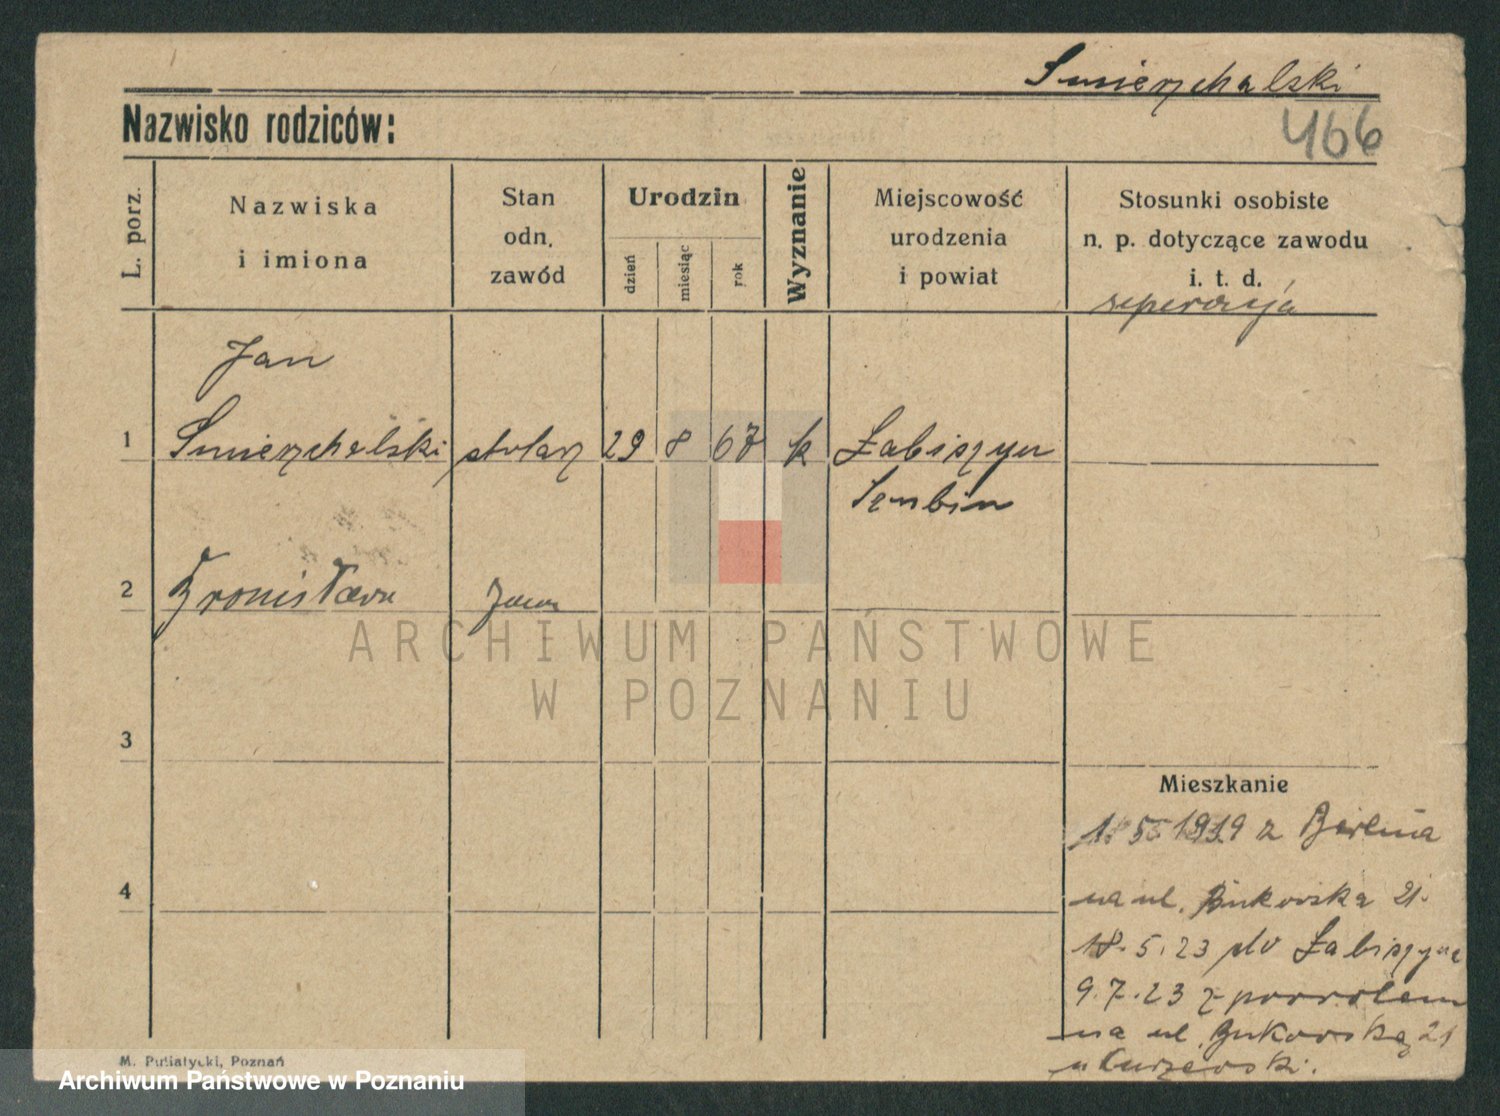 Smierzchalski
Nazwisko rodziców:
466
L. porz.
Nazwiska
i imiona
Stan
odn.
zawód
Urodzin
dzień
miesiąc
rok
Wyznanie
Miejscowość
urodzenia
i powiat
Stosunki osobiste
n. p. dotyczące zawodu
i. t. d.
Jan
1 Smierzchalski stolarz 29 8 67 k Łabiszyn
Szubin
2 Bronisława żona
3
Mieszkanie
1. 5. 1919 z Berlina
4
na ul. Bukowska 21.
18. 5. 23 do Łabiszyna
9. 7. 23 z powrotem
na ul. Bukowską 21
M. Putiatycki, Poznań
ARCHIWUM PAŃSTWOWE
W POZNANIU
Archiwum Państwowe w Poznaniu